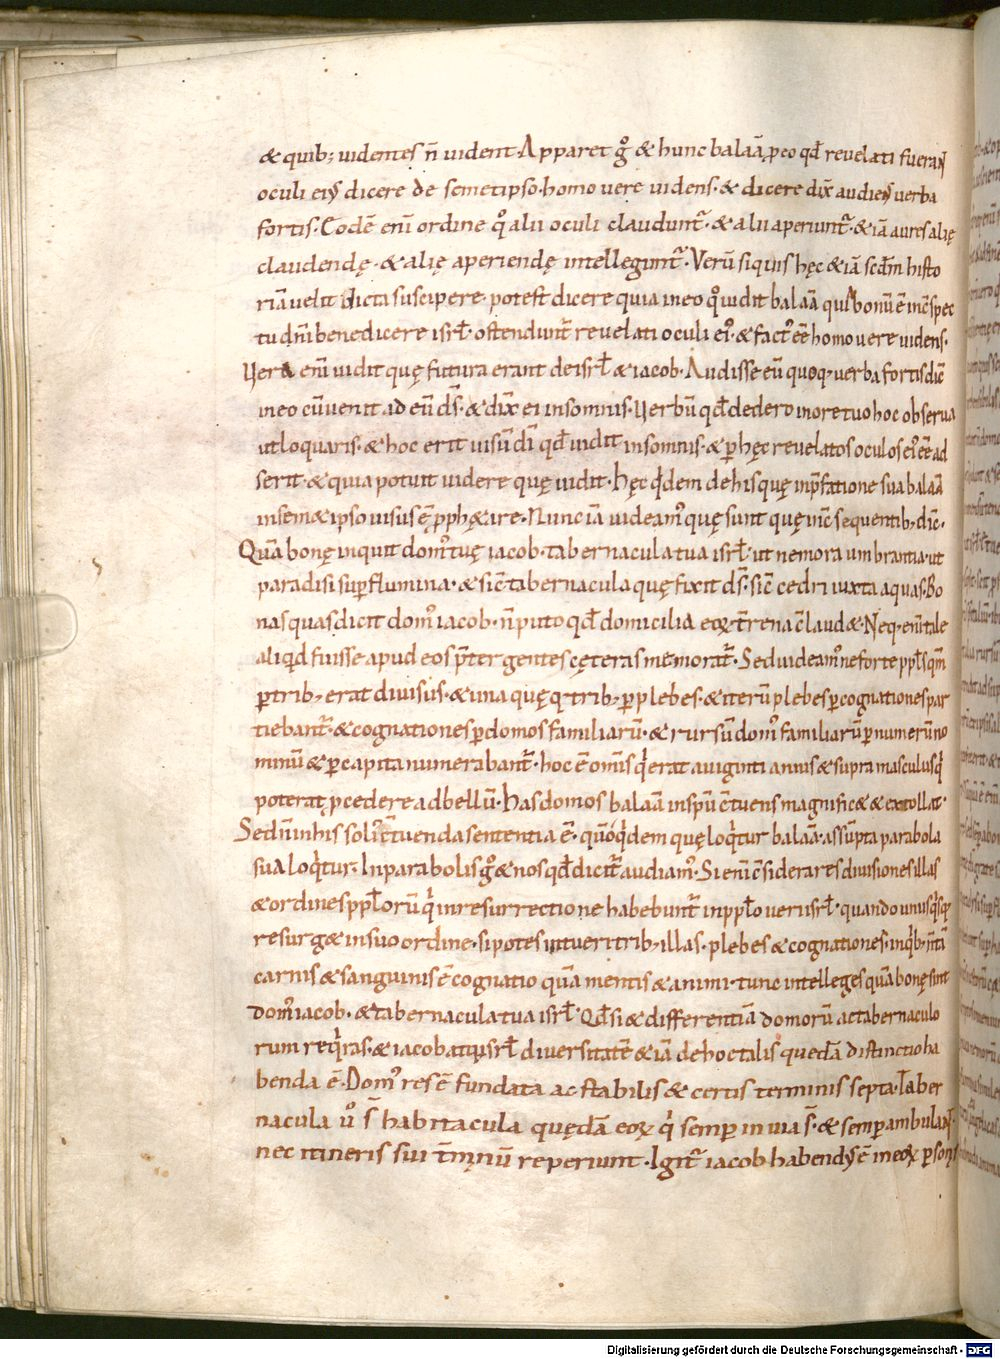 & quib; uidentes n̄ uident. Apparet gͦ & hunc balaā, p eo qd̄ reuelati fuerant
oculi eiꝰ dicere de semetipso. homo uere uidens. & dicere dix̄ audiens uerba
fortis. Eodē eni ordine qͦ alii oculi claudunt̄. & alii aperiunt̄. & iā aures alię
claudendę. & alię aperiendę intellegunt̄. Verū siquis hęc & iā scdm̄ histo
riā uelit dicta suscipere. potest dicere quia in eo qͦ uidit balaā quia bonū ē in c̄spec
tu dn̄i benedicere isrl̄. ostendunt̄ reuelati oculi eiꝰ. & factꝰ eē homo uere uidens.
Uere eni uidit quę futura erant de isrl̄ & iacob. Audisse eū quoq; uerba fortis dic̄
in eo cū uenit ad eū ds̄. & dix̄ ei in somnis. Uerbū qd̄ dedero in ore tuo hoc obserua
ut loquaris. & hoc erit uisū dī qd̄ uidit in somnis. & p hęc reuelatos oculos eiꝰ eē ad
serit. & quia potuit uidere quę uidit. hęc qdem de his quę in p̄fatione sua balaā
in sem&ipso uisus ē, pph&ire. Nunc iā uideamꝰ quę sunt quę in c̄sequentib; dic̄.
Quā bonę inquit domꝰ tuę iacob. tabernacula tua isrl̄. ut nemora umbrantia. ut
paradisi sup flumina. & sic̄ tabernacula quę fixit ds̄. sic̄ cedri iuxta aquas. Bo
nas quas dicit domꝰ iacob. n̄ puto qd̄ domicilia eoꝝ t̄rena c̄laud&. Neq; eni tale
aliqd fuisse apud eos p̄ter gentes cęteras memorat̄. Sed uideamꝰ ne forte ppl̄s qm̄
p trib; erat diuisus. & una quęq; trib; p plebes. & iterū plebes p cognationes par
tiebant̄. & cognationes p domos familiarū. & rursū domꝰ familiarū p numerū no
minū & p capita numerabant̄. hoc ē omīs qi erat a uiginti annis & supra masculus qi
poterat, pcedere ad bellū. Has domos balaā in spū c̄tuens magnific& & extollat.
Sed n̄ in his solis c̄tuenda sententia ē. quō qdem quę loqtur balaā. assūpta parabola
sua loqtur. In parabolis gͦ & nos qd̄ dicit̄ audiamꝰ. Si eni c̄siderares diuisiones illas
& ordines ppl̄orū qi in resurrectione habebunt̄ in ppl̄o ueri isrl̄. quando unusqsq;
resurg& in suo ordine. si potes intueri trib; illas. plebes & cognationes. in qb; n̄ tā
carnis & sanguinis ē cognatio quā mentis & animi. tunc intelleges quā bonę sint
domꝰ iacob. & tabernacula tua isrl̄. Qd̄ si & differentiā domorū ac tabernaculo
rum reqras. & iacob atq; isrl̄ diuersitatē & iā de hoc talis quedā distinctio ha
benda ē. Domꝰ res ē fundata ac stabilis & certis terminis septa. Taber
nacula uͦ s̄ habitacula quędā eoꝝ qi semp in uia s̄. & semp ambulant.
nec itineris sui t̄mīnū reperiunt. Igit̄ iacob habendꝰ ē in eoꝝ psonis
Digitalisierung gefördert durch die Deutsche Forschungsgemeinschaft - DFG